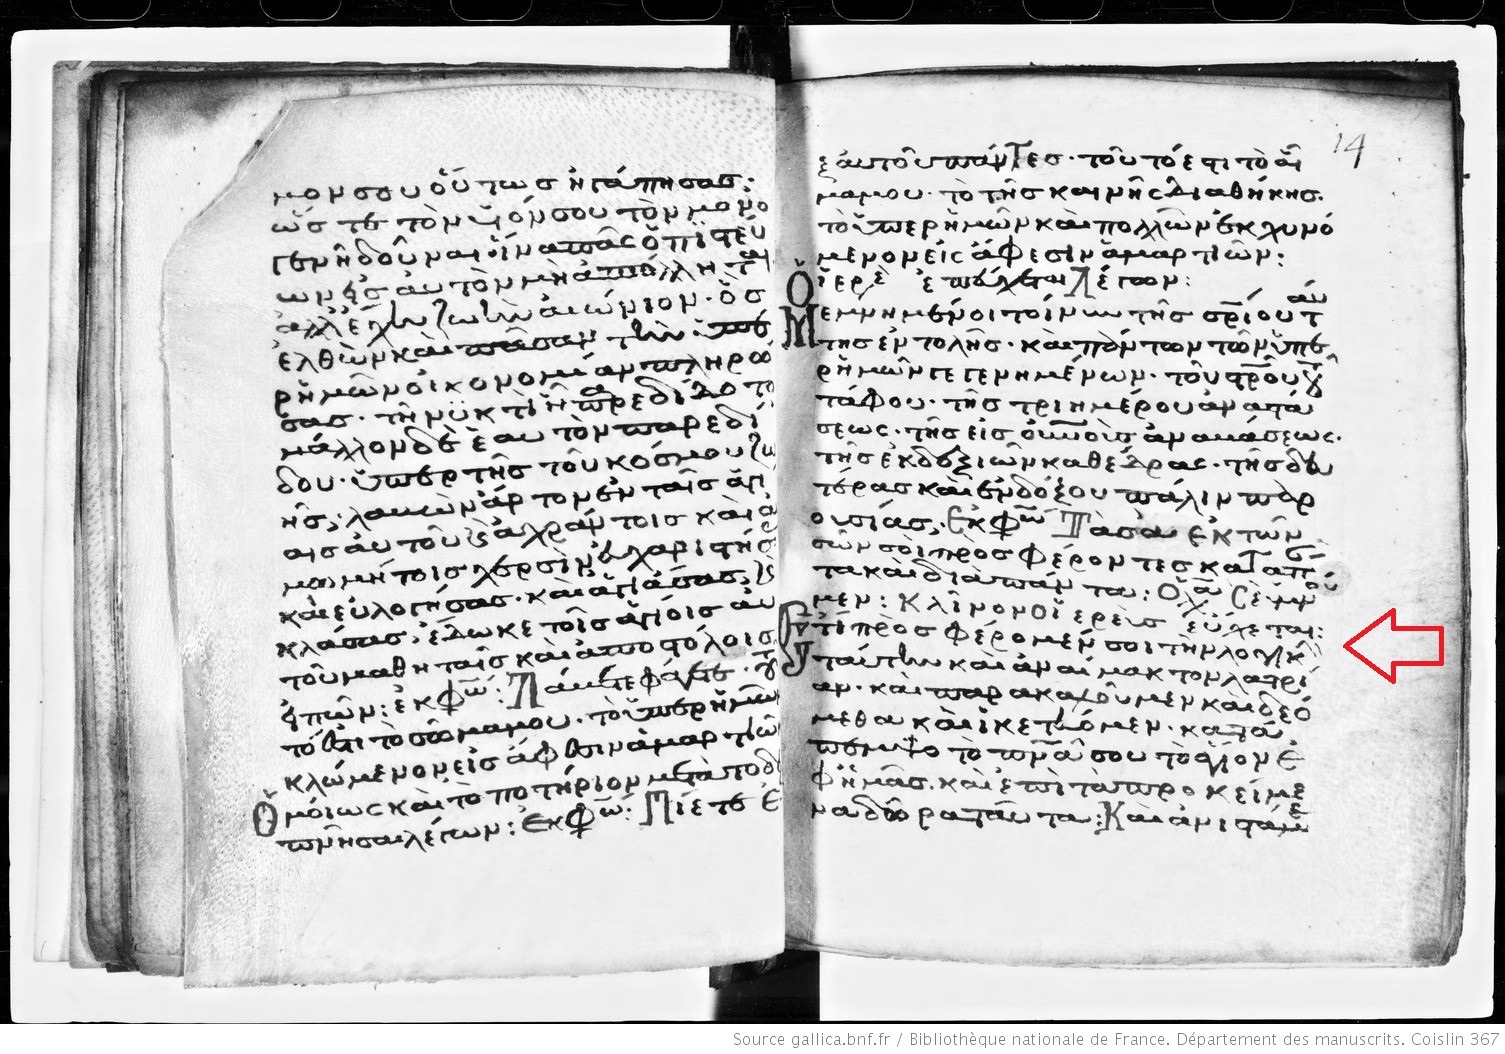 μον σου οὕτως ἠγάπησας·
ὥς τε τὸν υἱόν σου τὸν μονο
γενῆ δοῦναι ἵνα πᾶς ὁ πιστεύ
ων εἰς αὐτὸν μὴ ἀπόληται
ἀλλ' ἔχη ζωὴν αἰώνιον· ὃς
ἐλθὼν καὶ πᾶσαν τὴν ὑπὲ
ρ ἡμῶν οἰκονομίαν πληρώ
σας· τῆ νυκτὶ ἧ παρεδίδοτο
μᾶλλον δὲ ἑαυτὸν παρεδί
δου· ὑπὲρ τῆς τοῦ κόσμου ζω
ῆς· λαβὼν ἄρτον ἐν ταῖς ἁγί
αις αὐτοῦ ἀχράντοις καὶ ἀ
μωμήτοις χερσὶν εὐχαριστήσ
καὶ εὐλογήσας· καὶ ἁγιάσας·
κλάσας· ἔδωκε τοῖς ἁγίοις αὐ
τοῦ μαθηταῖς καὶ ἀποστόλοις
εἰπών: ἐκφών: Λάβετε φάγετε· τοῦ
τό ἐστι τὸ σῶμα μου· τὸ ὑπὲρ ἡμῶν
κλώμενον εἰς ἄφεσιν ἁμαρτιῶν
Ὁμοίως καὶ τὸ ποτήριον μετὰ τὸ δει
πνῆσαι λέγων: ἐκφών: Πίετε ἐ
14
ξ αὐτοῦ πάντες· τοῦτό ἐστι τὸ αἷ
μα μου· τὸ τῆς καινῆς διαθήκης·
τὸ ὑπὲρ ἡμῶν καὶ πολλῶν ἐκχυνό
μενον εἰς ἄφεσιν ἁμαρτιῶν:
Ὁ ἱερὲ ἐπεύχεται λέγων:
Μεμνημένοι τοίνυν τῆς σρίου ταύτ
της ἐντολῆς· καὶ πάντων τῶν ὑπὲ
ρ ἡμῶν γεγενημένων· τοῦ σροῦ τοῦ
τάφου· τῆς τριημέρου ἀναστά
σεως· τῆς εἰς οὐνοὺς ἀναβάσεως·
τῆς ἐκ δεξιῶν καθέδρας· τῆς δευ
τέρας καὶ ἐνδόξου πάλιν παρ
ουσίας· ἐκφών Τὰ σὰ ἐκ τῶν
σῶν σοὶ προσφέροντες κατὰ πά
ντα καὶ διὰ πάντα: Ὁ λα Σὲ ὑμνοῦ
μεν: Κλινόμενος ὁ ἱερεὺς εὔχεται:
Ἔτι προσφέρομέν σοι τὴν λογικὴ
ν ταύτην καὶ ἀναίμακτον λατρεί
αν· καὶ παρακαλοῦμεν καὶ δεό
μεθα καὶ ἱκετεύομεν· κατά
πεμψον τὸ πνα σου τὸ ἅγιον ἐ
φ' ἡμᾶς· καὶ ἐπὶ τὰ προκείμε
να δῶρα ταῦτα: Καὶ ἀνιστάμε
Source gallica.bnf.fr / Bibliothèque nationale de France. Département des manuscrits. Coislin 367